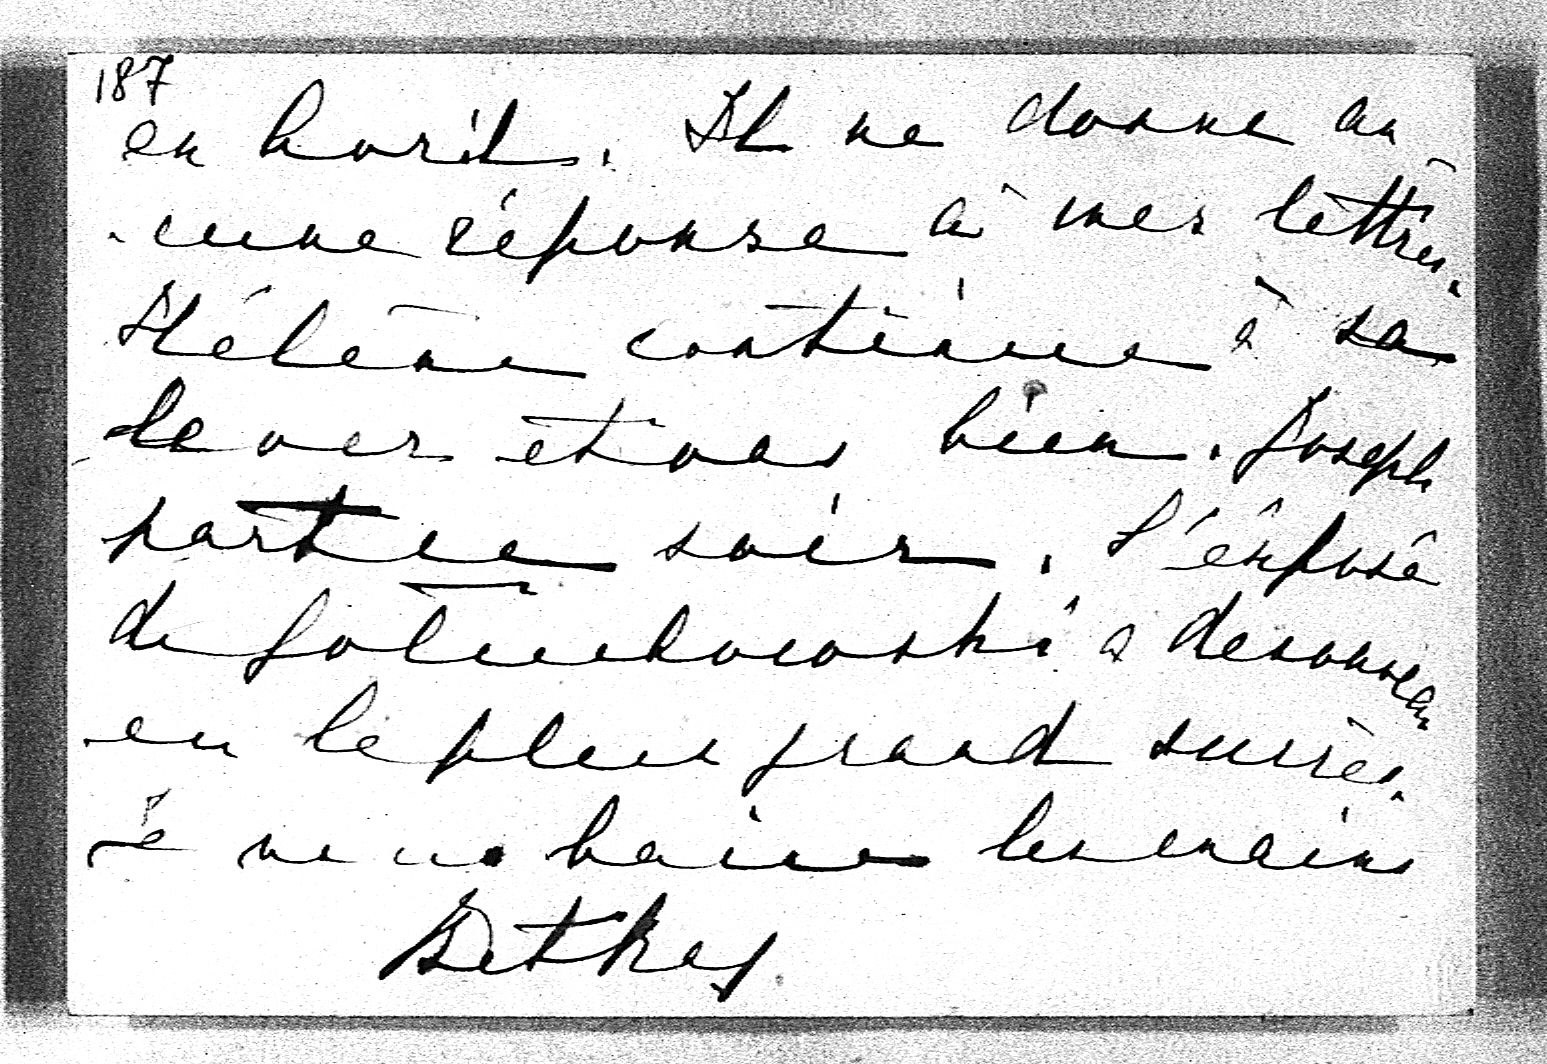 187
en
Il ne donne au
cune réponse à mes lettres.
Hélène continue à sa
lever et va bien. Joseph
part ce soir. L'exposé
de Goluchowski a de nouveau
eu le plus grand succès.
Je vous baise les mains